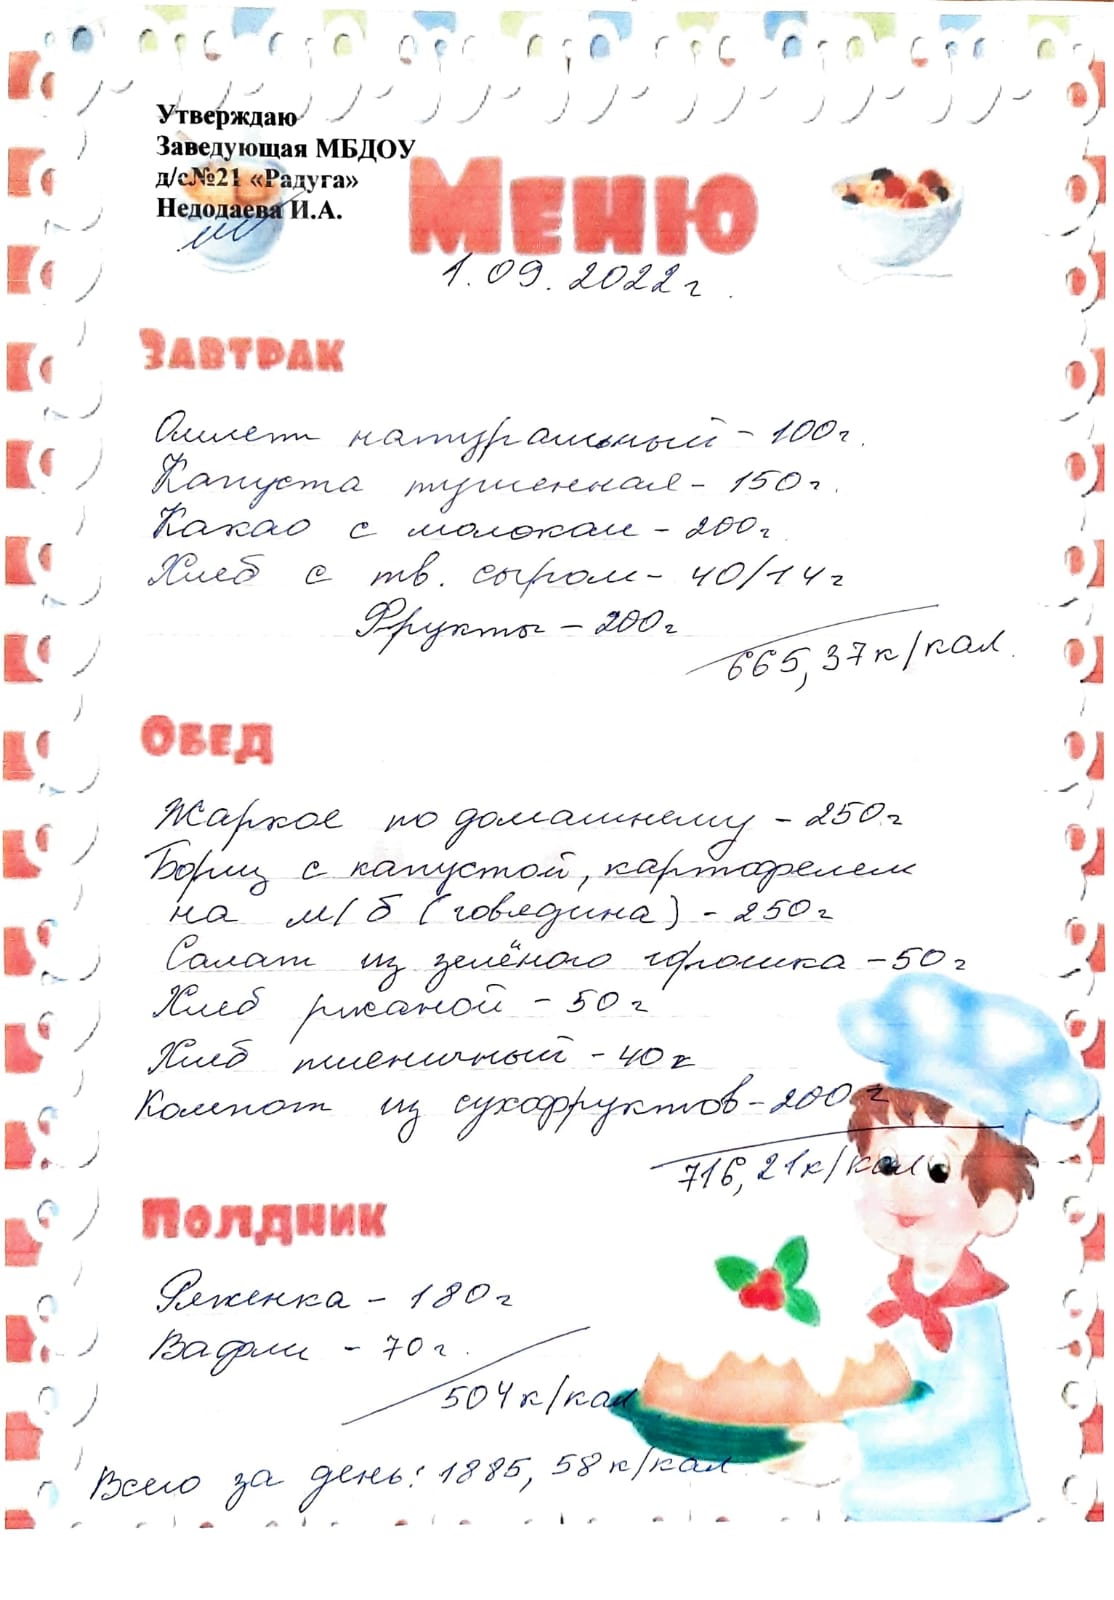 Утверждаю
Заведующая МБДОУ
д/с№21 «Радуга»
Недодаева И.А.
Меню
1.09.2022г.
Завтрак
Омлет натуральный - 100г.
Капуста тушенная - 150г.
Какао с молоком - 200г.
Хлеб с тв. сыром - 40/14г
Фрукты - 200г
665,37к/кал.
Обед
Жаркое по домашнему - 250г
Борщ с капустой, картофелем
на м/б (говядина) - 250г
Салат из зелёного горошка - 50г
Хлеб ржаной - 50г
Хлеб пшеничный - 40г
Компот из сухофруктов - 200г
716,21к/кал
Полдник
Ряженка - 180г
Вафли - 70г.
504к/кал
Всего за день: 1885,58к/кал